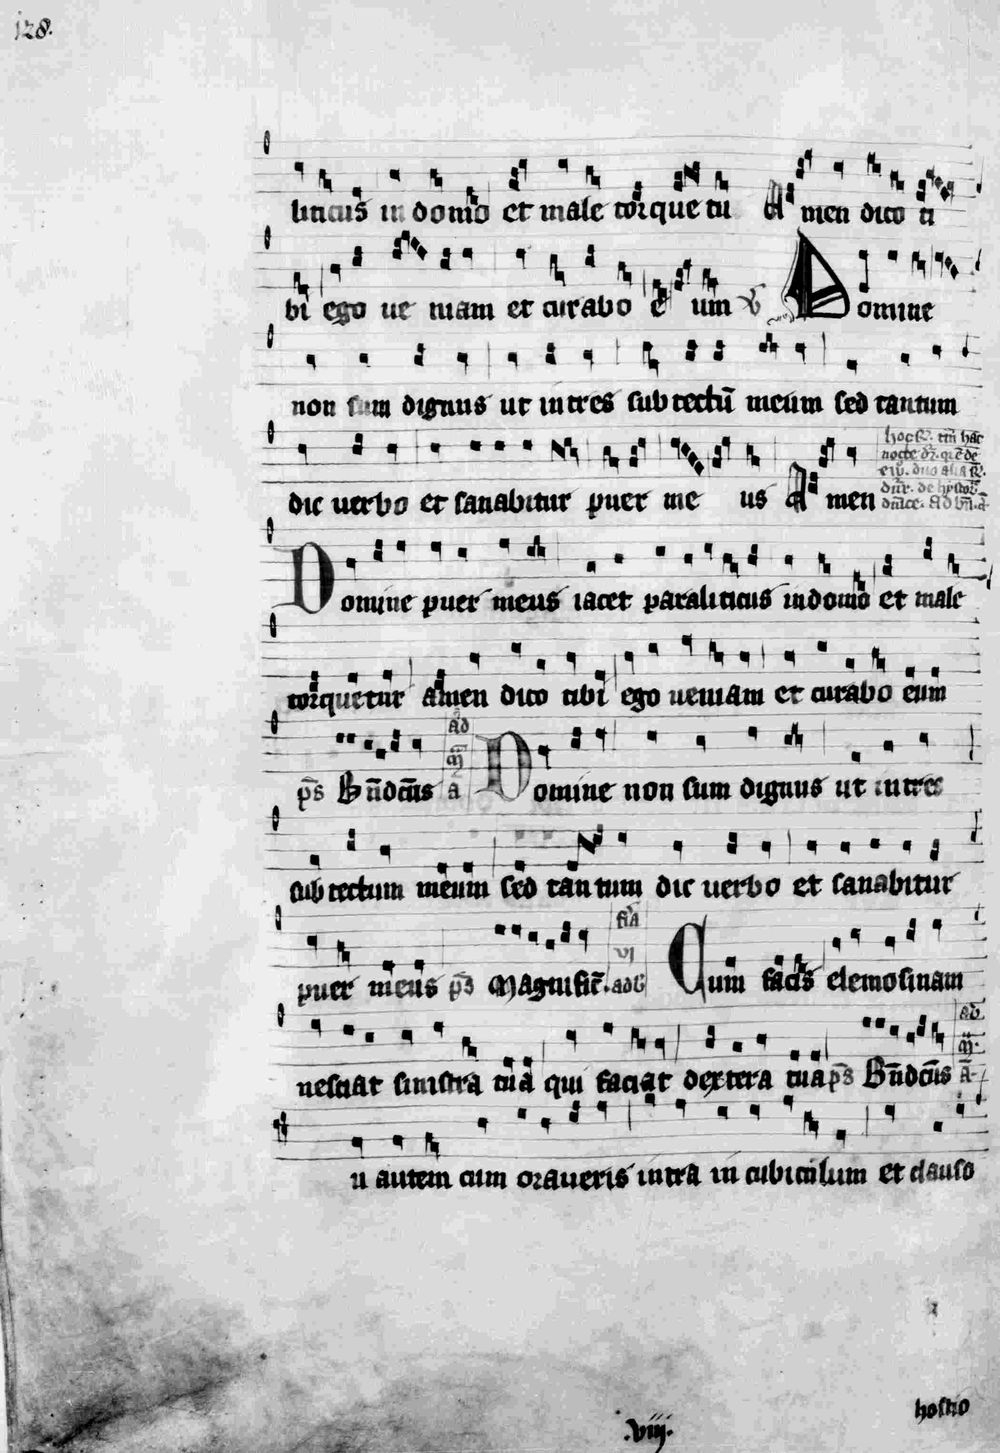 128.
liticus in domo et male torque tu A men dico ti
bi ego ue niam et curabo e um V Domine
non sum dignus ut intres sub tectū meum sed tantum
dic uerbo et sanabitur puer me us A men
Domine puer meus iacet paraliticus in domo et male
torquetur amen dico tibi ego ueniam et curabo eum
p̄s Bn̄dcūs ad m̄ a Domine non sum dignus ut intres
sub tectum meum sed tantum dic uerbo et sanabitur
puer meus p̄s Magnificā. fr̄ia vj adb Cum facis elemosinam
nesciat sinistra tua qui faciat dextera tua p̄s Bn̄dcūs ad m̄. ā
u autem cum oraueris intra in cubiculum et clauso
hostio
.viij.